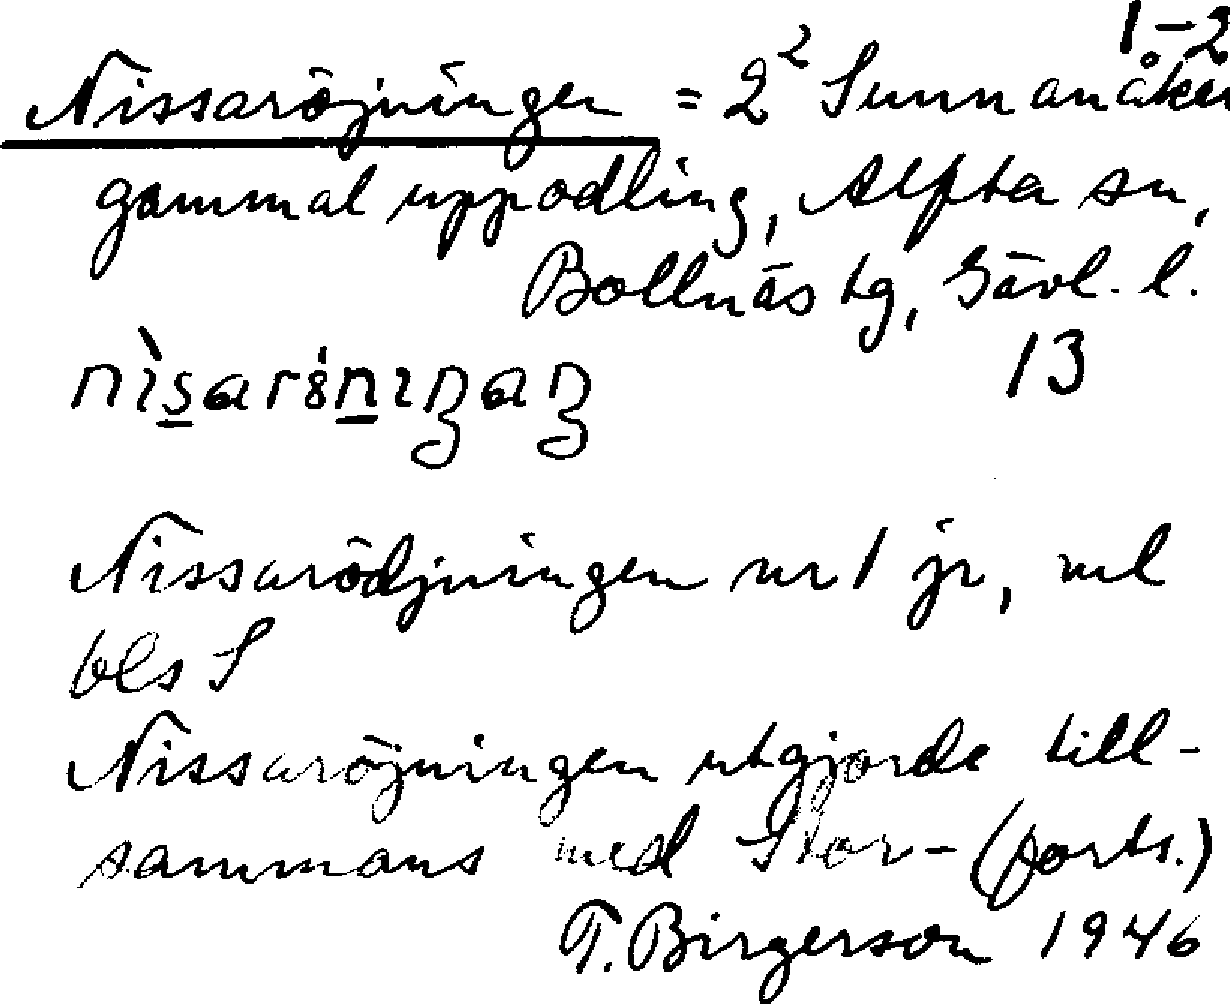 1-2
Nissaröjningen = 2² Sunnanåker
gammal uppodling, Alfta sn,
Bollnäs tg, Gävl. l.
13
Nissarödjningen nr 1 jr, ml
bls S
Nissaröjningen utgjorde till-
sammans med Stor- (forts.)
T. Birgerson 1946